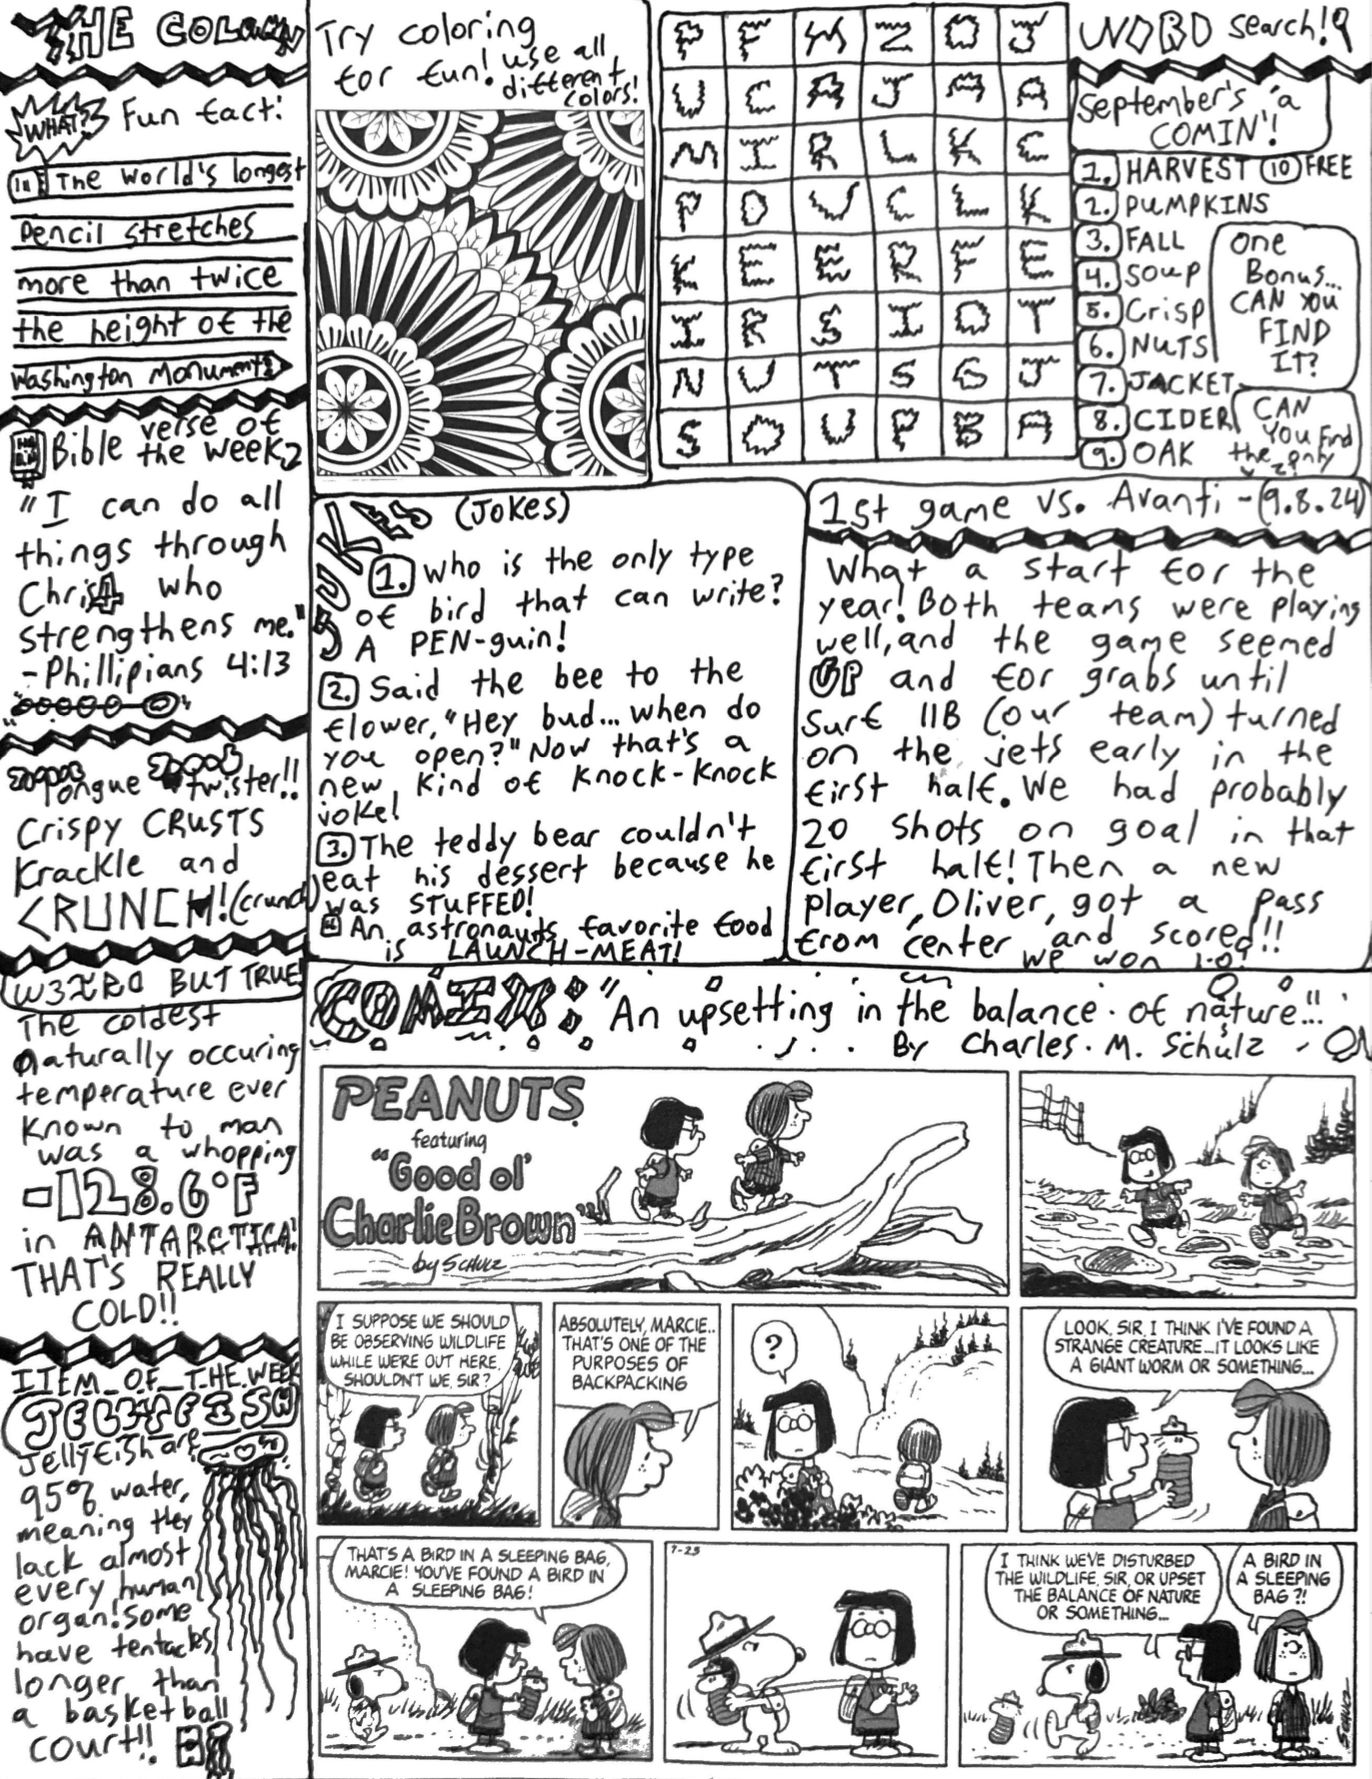 THE COLUMN
WHAT?
Fun fact:
The world's longest
pencil stretches
more than twice
the height of the
Washington Monument!
Bible verse of
the week
"I can do all
things through
Christ who
strengthens me."
-Phillipians 4:13
Tongue twister!!
Crispy CRUSTS
Krackle and
CRUNCH! (crunch)
W3IRD BUT TRUE!
The coldest
naturally occuring
temperature ever
known to man
was a whopping
-128.6°F
in ANTARCTICA!
THAT'S REALLY
COLD!!
ITEM OF THE WEEK
JELLYFISH
Jellyfish are
95% water,
meaning they
lack almost
every human
organ! Some
have tentacles
longer than
a basketball
court!!
Try coloring
for fun! use all
different
colors!
P F M Z O J
U C A J A A
M I R L K C
P D V C L K
K E E R F E
I R S I O T
N U T S G J
S O U P B A
WORD search!
September's 'a
COMIN'!
1. HARVEST 10 FREE
2. PUMPKINS
3. FALL
4. Soup
5. Crisp
6. NUTS
7. JACKET
8. CIDER
9. OAK
one
Bonus...
CAN YOU
FIND
IT?
CAN
YOU find
the only
JUKES (Jokes)
1. Who is the only type
of bird that can write?
A PEN-guin!
2. Said the bee to the
flower, "Hey bud... when do
you open?" Now that's a
new kind of Knock-Knock
joke!
3. The teddy bear couldn't
eat his dessert because he
was STUFFED!
An astronauts favorite food
is LAUNCH-MEAT!
1st game vs. Avanti - (9.8.24)
What a start for the
year! Both teams were playing
well, and the game seemed
UP and for grabs until
Surf 11B (our team) turned
on the jets early in the
first half. We had probably
20 shots on goal in that
first half! Then a new
player, Oliver, got a pass
from center and scored!!
We won 1-0!
COMIX: "An upsetting in the balance of nature"...
By Charles. M. Schulz
PEANUTS
featuring
"Good ol'
Charlie Brown"
by SCHULZ
I SUPPOSE WE SHOULD
BE OBSERVING WILDLIFE
WHILE WE'RE OUT HERE,
SHOULDN'T WE, SIR?
ABSOLUTELY, MARCIE..
THAT'S ONE OF THE
PURPOSES OF
BACKPACKING
?
LOOK, SIR, I THINK I'VE FOUND A
STRANGE CREATURE...IT LOOKS LIKE
A GIANT WORM OR SOMETHING...
THAT'S A BIRD IN A SLEEPING BAG,
MARCIE! YOU'VE FOUND A BIRD IN
A SLEEPING BAG!
7-23
I THINK WE'VE DISTURBED
THE WILDLIFE, SIR, OR UPSET
THE BALANCE OF NATURE
OR SOMETHING...
A BIRD IN
A SLEEPING
BAG?!
SCHULZ